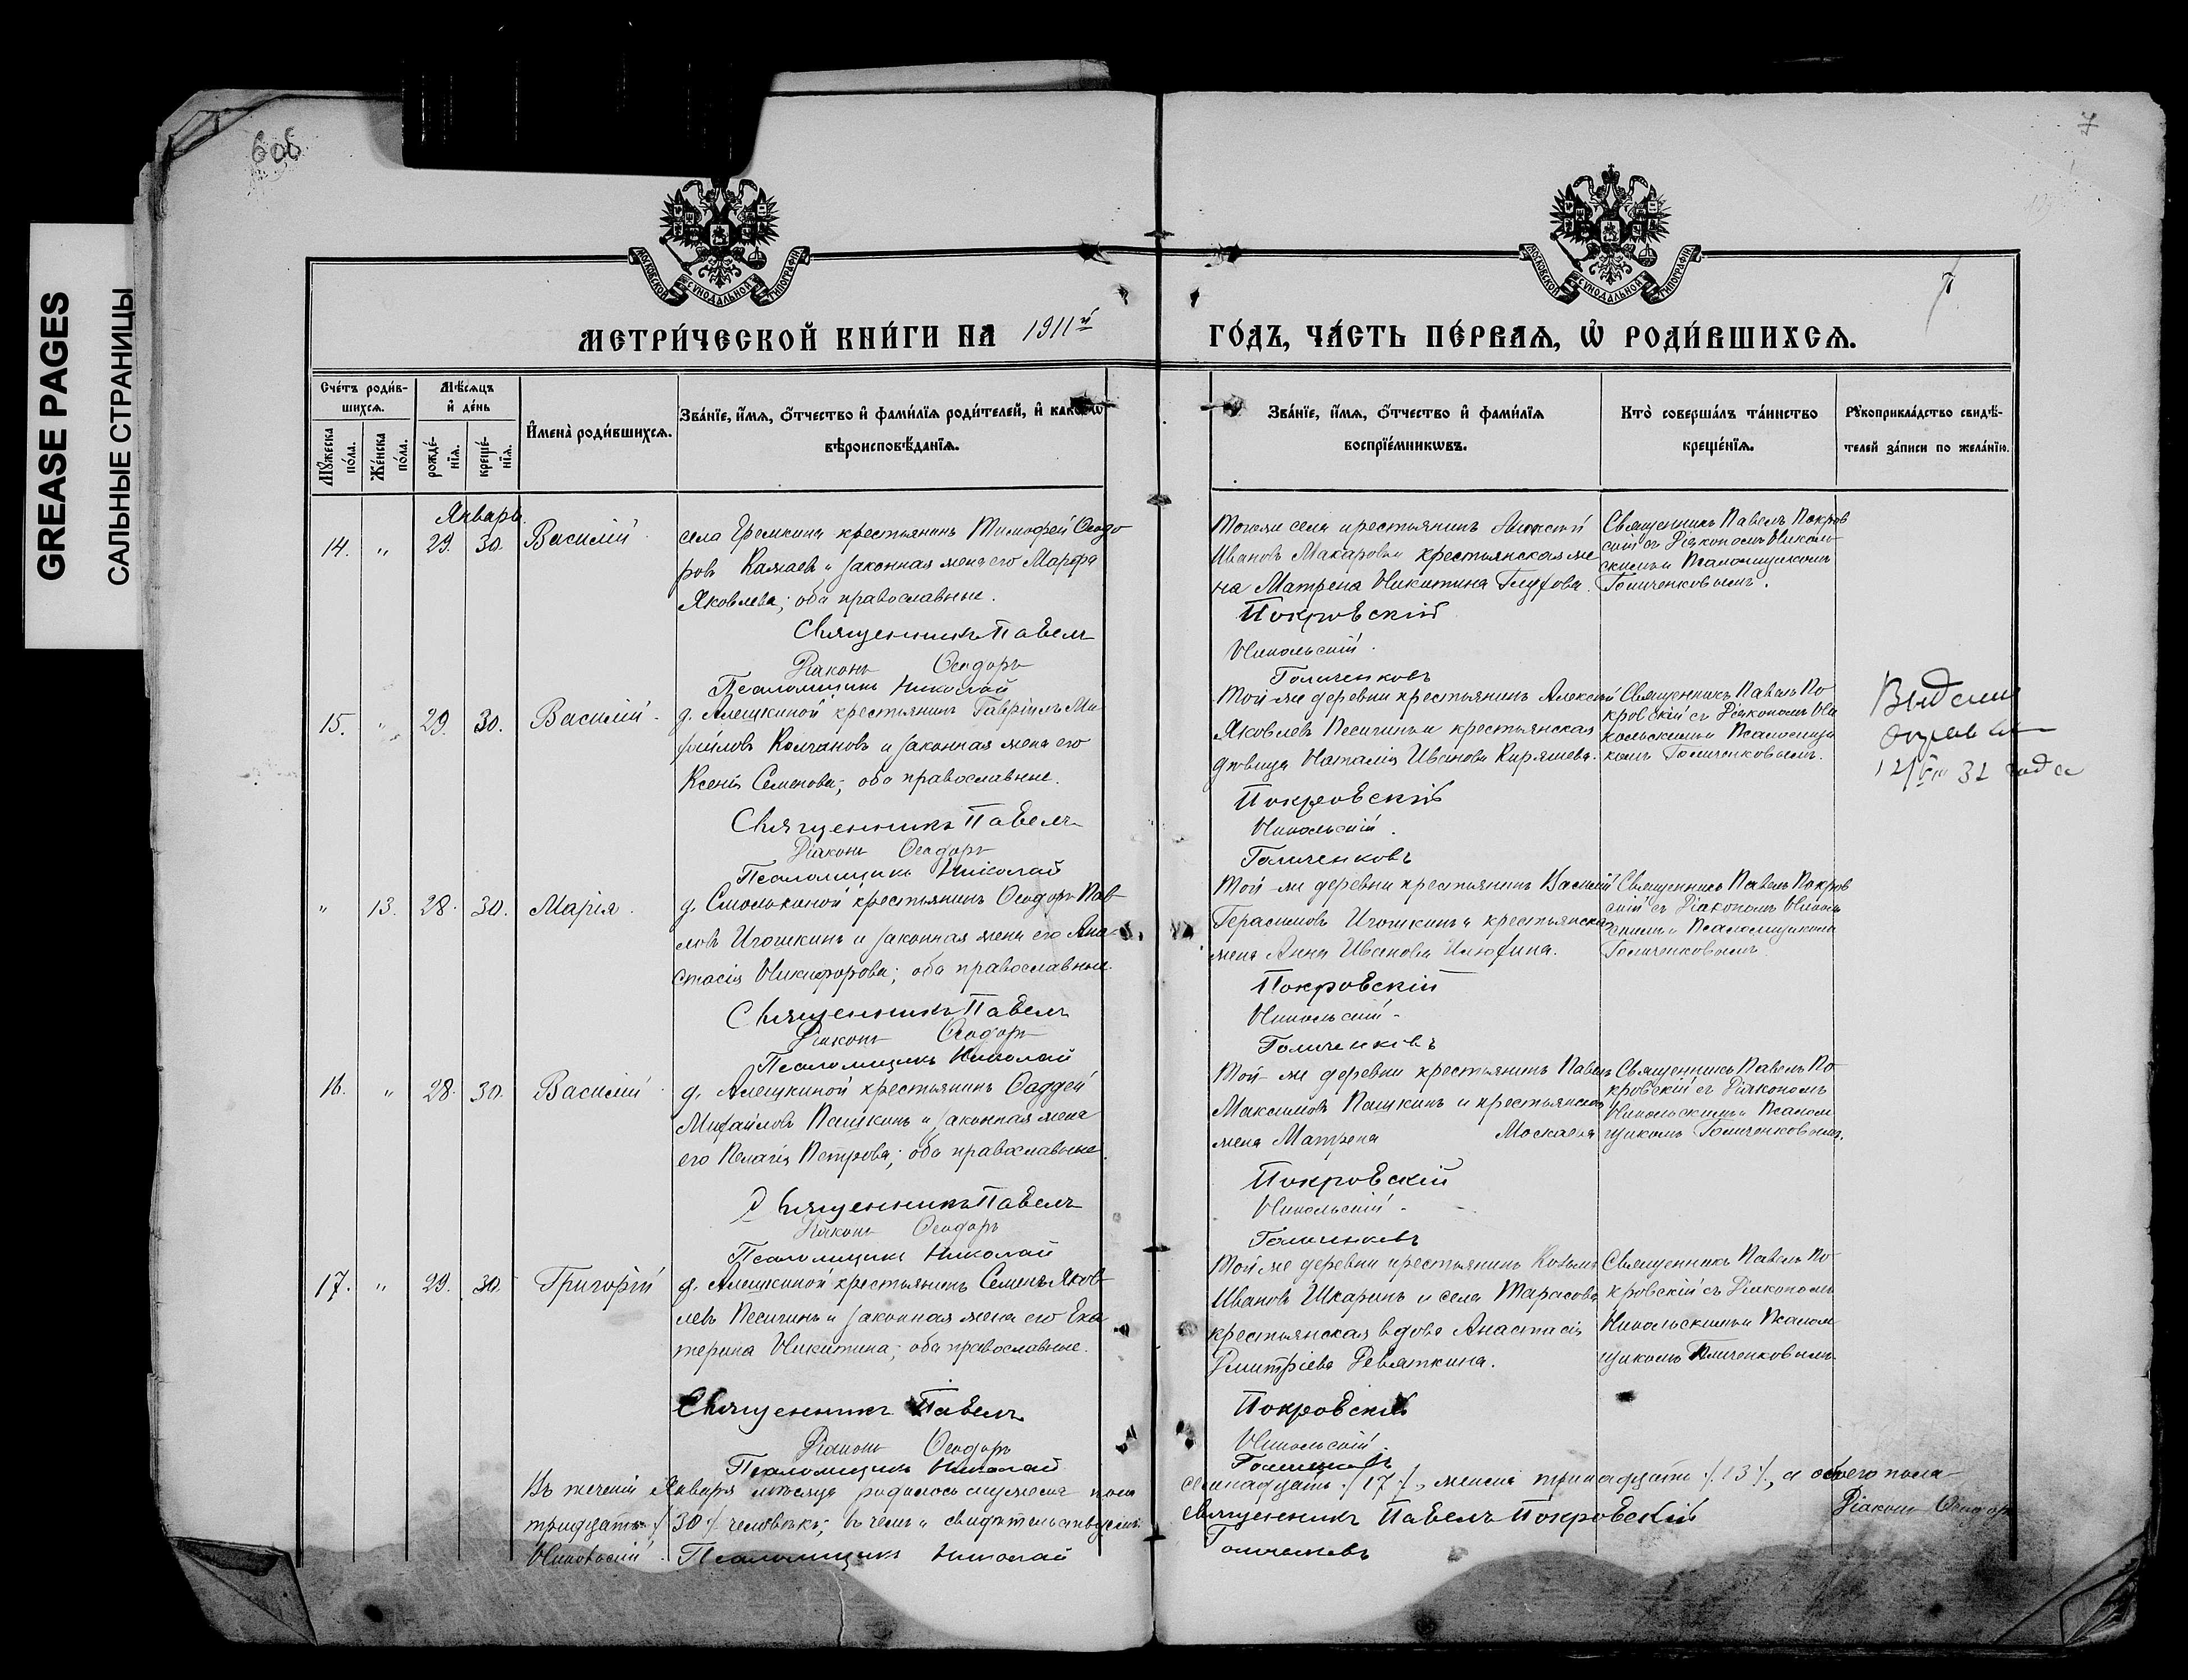 GREASE PAGES
САЛЬНЫЕ СТРАНИЦЫ
606
7
7
МОСКОВСКОЙ СѴНОДАЛЬНОЙ ТИПОГРАФІИ
МОСКОВСКОЙ СѴНОДАЛЬНОЙ ТИПОГРАФІИ
МЕТРИ́ЧЕСКОЙ КНИ́ГИ НА 1911й
ГО́ДЪ, ЧА́СТЬ ПЕ́РВАѦ, Ѡ҆ РОДИ́ВШИХСѦ.
Сче́тъ роди́в-
шихсѧ.
Мꙋ́жеска по́ла.
Же́нска по́ла.
Мѣ́сѧцъ
и҆ де́нь
рожде́-
нїѧ.
креще́-
нїѧ.
И҆мена̀ роди́вшихсѧ.
Зва́нїе, и҆́мѧ, ѻ҆́тчество и҆ фами́лїѧ роди́телей, и҆ како́гѡ
вѣроисповѣ́данїѧ.
Зва́нїе, и҆́мѧ, ѻ҆́тчество и҆ фами́лїѧ
воспрїе́мникѡвъ.
Кто̀ соверша́лъ та́инство
креще́нїѧ.
Рꙋкоприкла́дство свидѣ́-
телей за́писи по жела́нїю.
Январь.
14. " 29. 30. Василій
села Еремкина крестьянинъ Тимофей Ѳеодо
ровъ Камаевъ и законная жена его Марфа
Яковлева; оба православные.
Священникъ Павелъ
Діаконъ Ѳеодоръ
Псаломщикъ Николай
села крестьянинъ
Иванов Макаровъ и крестьянская же
на Матрена Никитина Глухова.
Покровскій
Никольскій
Голиченковъ
Священникъ Павелъ Покров
скій съ Діакономъ Николь
скимъ и Псаломщикомъ
Голиченковымъ.
15. " 29. 30. Василий
д. Алешкиной крестьянинъ Гавріилъ Ми
хайловъ Колчановъ и законная жена его
Ксенія Семенова; оба православные.
Священникъ Павелъ
Діаконъ Ѳеодоръ
Псаломщикъ Николай
Той-же деревни крестьянинъ Алексѣй
Яковлевъ Песигинъ и крестьянская
дѣвица Наталія Иванова Киряшева.
Покровскій
Никольскій
Голиченковъ
Священникъ Павелъ По
кровскій съ Діакономъ Ни
кольскимъ и Псаломщи
комъ Голиченковымъ.
32 года
" 13. 28. 30. Марія.
д. Смолькиной крестьянинъ Ѳеодоръ Пав
ловъ Игошкинъ и законная жена его Ана
стасія Никифорова; оба православные.
Священникъ Павелъ
Діаконъ Ѳеодоръ
Псаломщикъ Николай
Той-же деревни крестьянинъ Василій
Герасимовъ Игошкинъ и крестьянская
жена Анна Иванова Илюхина.
Покровскій
Никольскій
Голиченковъ
Священникъ Павелъ Покров
скій съ Діакономъ Николь
скимъ и Псаломщикомъ
Голиченковымъ
16. " 28. 30. Василій
д. Алешкиной крестьянинъ Ѳаддей
Михайловъ Пашкинъ и законная жена
его Пелагія Петрова; оба православные.
Священникъ Павелъ
Діаконъ Ѳеодоръ
Псаломщикъ Николай
Той-же деревни крестьянинъ Павелъ
Максимовъ Пашкинъ и крестьянская
жена Матрена Москаева
Покровскій
Никольскій
Голиченковъ
Священникъ Павелъ По
кровскій съ Діакономъ
Никольскимъ и Псалом
щикомъ Голиченковымъ.
17. " 29. 30. Григорій
д. Алешкиной крестьянинъ Семенъ Яков
левъ Песигинъ и законная жена его Ека
терина Никитина; оба православные.
Священникъ Павелъ
Діаконъ Ѳеодоръ
Псаломщикъ Николай
Той же деревни крестьянинъ Козьма
Ивановъ Шкаринъ и села Тарасова
крестьянская вдова Анастасія
Дмитріева Девяткина.
Покровскій
Никольскій
Голиченковъ
Священникъ Павелъ По
кровскій съ Діакономъ
Никольскимъ и Псалом
щикомъ Голиченковымъ
Въ теченіи Января мѣсяца родилось мужеска пола семнадцать /17/, женска тринадцать /13/, а обоего пола
тридцать /30/ человѣкъ; въ чемъ и свидѣтельствуемъ: Священникъ Павелъ Покровскій Діаконъ Ѳеодоръ
Никольскій. Псаломщикъ Николай Голиченковъ